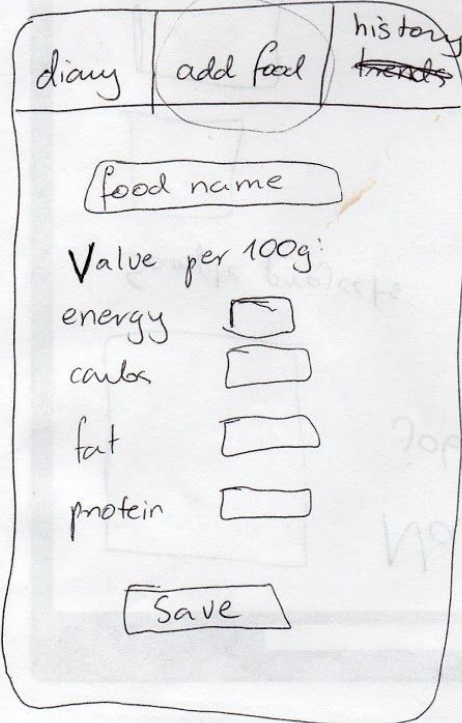 history
diary add food trends
food name
Value per 100g:
energy
carbs
fat
protein
Save